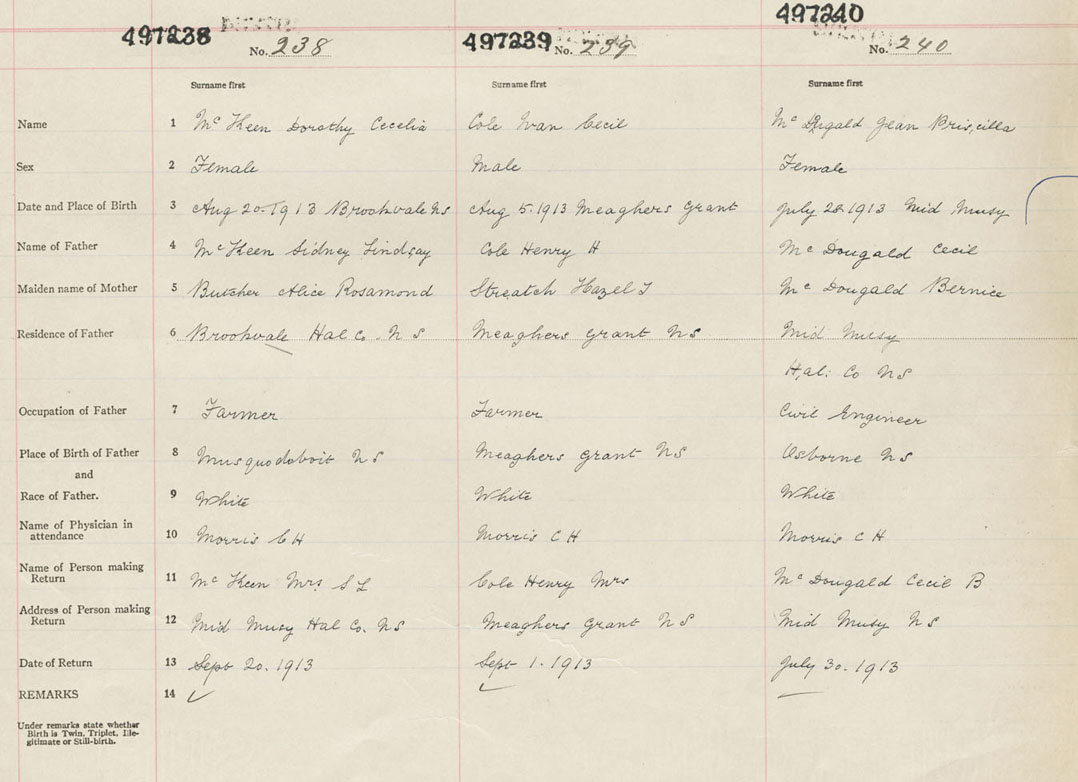 497238 497239 497240
No. 238 No. 239 No. 240
Surname first Surname first Surname first
Name 1 Mc Keen Dorothy Cecelia Cole Ivan Cecil Mc Dugald Jean Priscilla
Sex 2 Female Male Female
Date and Place of Birth 3 Aug 20. 1913 Brookvale NS Aug 5. 1913 Meaghers Grant July 28 1913 Mid Musq
Name of Father 4 Mc Keen Sidney Lindsay Cole Henry H Mc Dougald Cecil
Maiden name of Mother 5 Butcher Alice Rosamond Streatch Hazel Mc Dougald Bernice
Residence of Father 6 Brookvale Hal Co. N S Meaghers Grant NS Mid Musq
Hal: Co NS
Occupation of Father 7 Farmer Farmer Civil Engineer
Place of Birth of Father 8 Musquodoboit NS Meaghers Grant NS Osborne NS
and
Race of Father. 9 White White White
Name of Physician in
attendance 10 Morris C H Morris C H Morris C H
Name of Person making
Return 11 Mc Keen Mrs S L Cole Henry Mrs Mc Dougald Cecil B
Address of Person making
Return 12 Mid Musq Hal Co. NS Meaghers Grant NS Mid Musq NS
Date of Return 13 Sept 20. 1913 Sept 1. 1913 July 30. 1913
REMARKS 14
Under remarks state whether
Birth is Twin, Triplet, Ille-
gitimate or Still-birth.